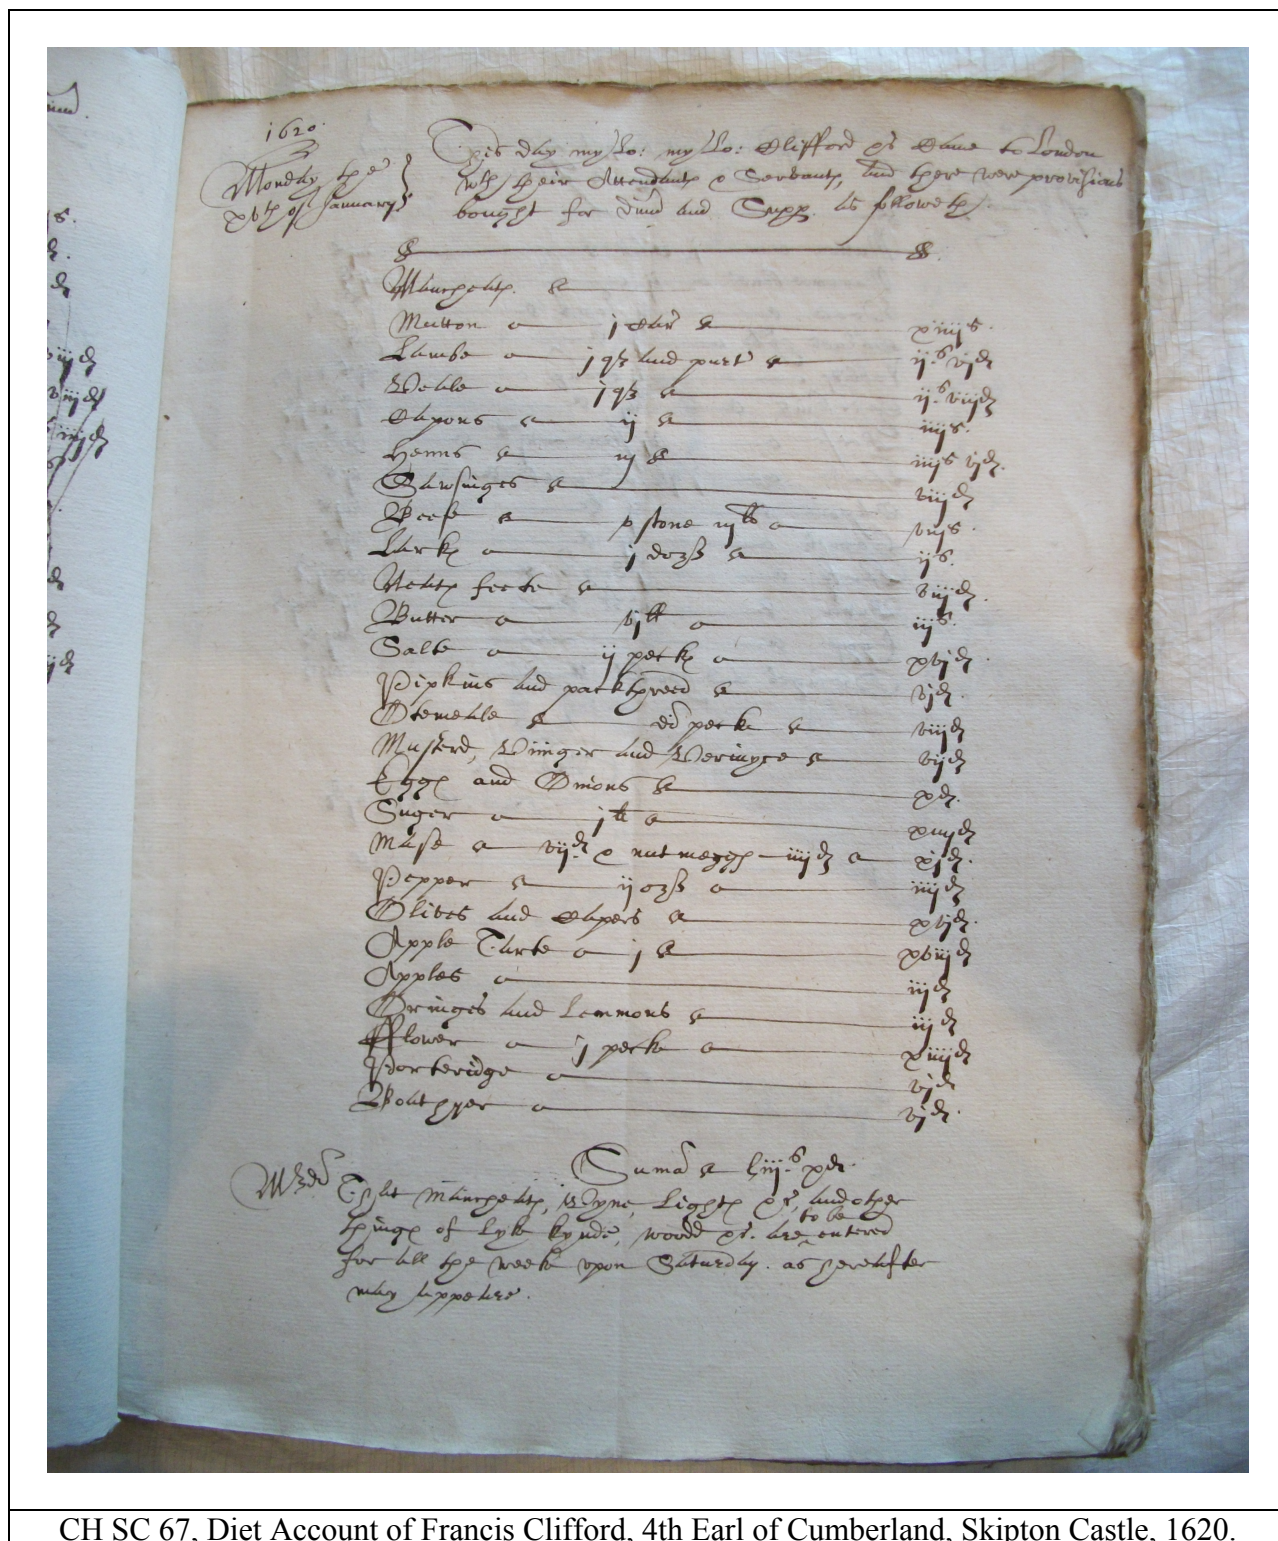 1620.
Monday the
xvth of January
This day my Lo: my Lo: Clifford &c Came to London
wth their Attendants & Servants, and there were provisions
bought for and Supp. as followeth.
Manchetts.
Mutton j xiiijs.
Lambe j qr and ijs vjd
Veale j qr ijs viijd
Capons ij iiijs.
Henns iij iiijs vjd.
Sawsinges viijd
Beefe stone iijlb vijs
Larks j doz ijs.
Neats feete viijd.
Butter vjlb iijs.
Salte ij pecks xvjd.
Pipkins and packthreed vjd.
Otemeale di pecke viijd
Musterd, Vineger and Veriuyce vijd
Eggs and Onions xd.
Suger jlb
Mase vijd & nutmeggs iiijd xjd.
Pepper ij oz iiijd
Olives and Capers xvjd.
Apple Tarte j xviijd
Apples iijd
Oringes and Lemmons iijd
fflower j pecke xiiijd
Porteridge vjd
Boathyer vjd.
Suma liijs xd.
That Manchetts, Wyne, Lights &c, and other
things of lyke kynde, woodd &c. are to be entered
for all the weeke vpon Saturday. as hereafter
may appeare.
CH SC 67, Diet Account of Francis Clifford, 4th Earl of Cumberland, Skipton Castle, 1620.